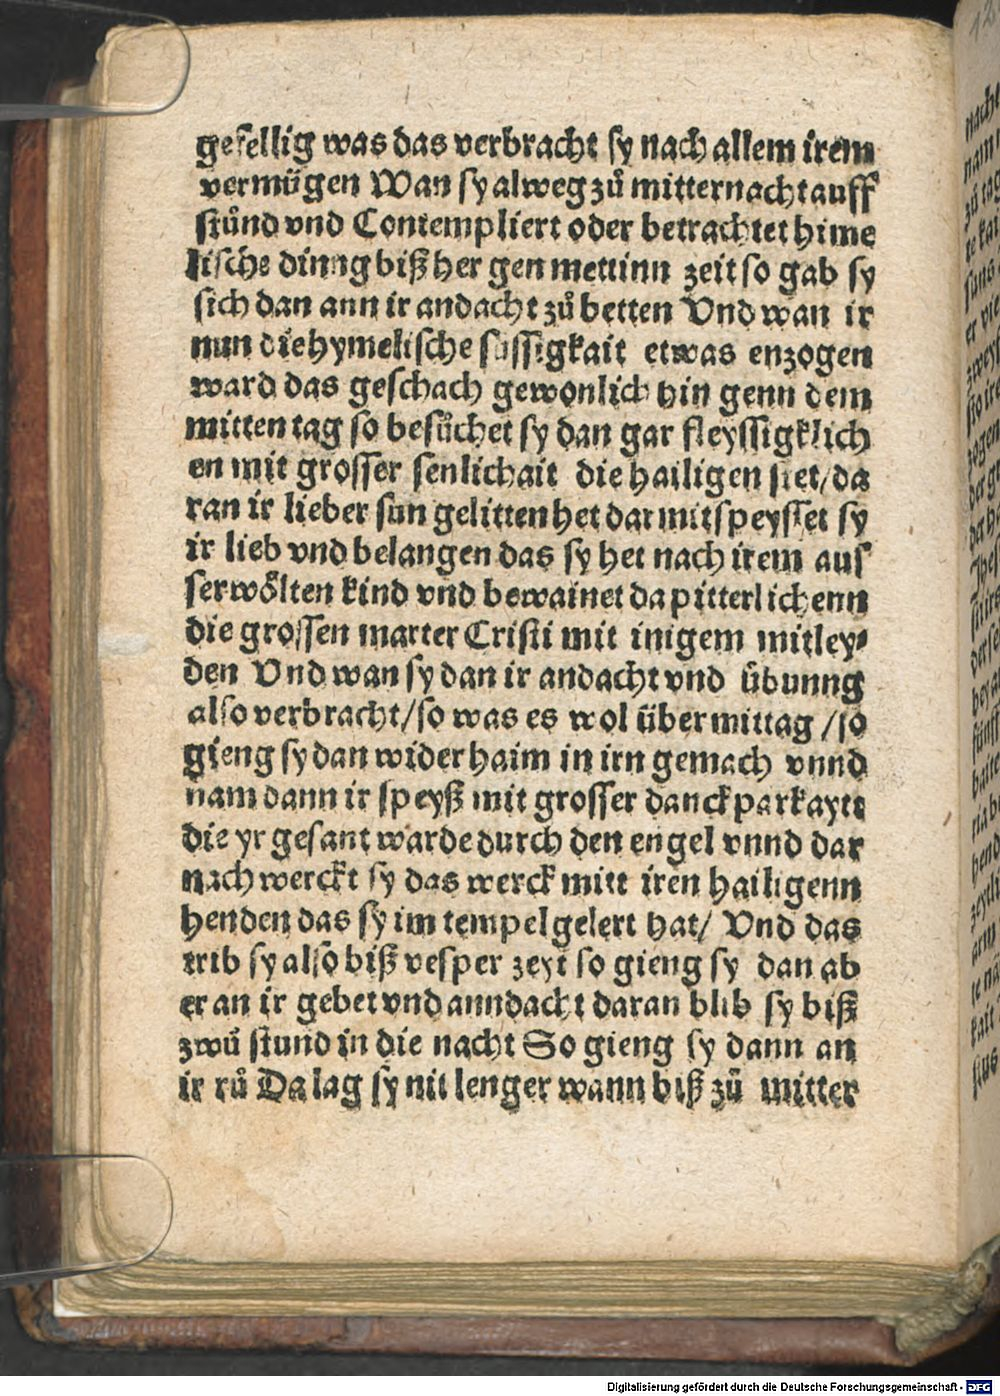 gefellig was das verbracht sy nach allem irem
vermügen Wan sy alweg zů mitternacht auff
stůnd vnd Contempliert oder betrachtet hime
lische dinng biß her gen mettinn zeit so gab sy
sich dan ann ir andacht zů betten Vnd wan ir
nun die hymelische süssigkait etwas enzogen
ward das geschach gewonlich hin genn dem
mitten tag so besůchet sy dan gar fleyssigklich
en mit grosser senlichait die hailigen stet/da
ran ir lieber sun gelitten het dar mit speysset sy
ir lieb vnd belangen das sy het nach irem aus
serwölten kind vnd bewainet da pitterlichenn
die grossen marter Cristi mit inigem mitley⸗
den Vnd wan sy dan ir andacht vnd übunng
also verbracht/so was es wol über mittag /so
gieng sy dan wider haim in irn gemach vnnd
nam dann ir speyß mit grosser danckparkayt
die yr gesant warde durch den engel vnnd dar
nach werckt sy das werck mitt iren hailigenn
henden das sy im tempel gelert hat/ Vnd das
trib sy also biß vesper zeyt so gieng sy dan ab
er an ir gebet vnd anndacht daran blib sy biß
zwů stund in die nacht So gieng sy dann an
ir rů Da lag sy nit lenger wann biß zů mitter
Digitalisierung gefördert durch die Deutsche Forschungsgemeinschaft - DFG